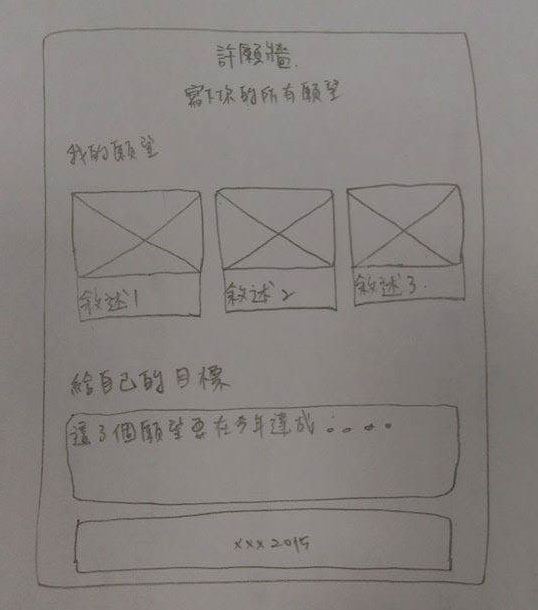 許願牆.
寫下你的所有願望
我的願望
敘述1
敘述2
敘述3.
給自己的目標
這3個願望要在今年達成:。。。。
xxx 2015